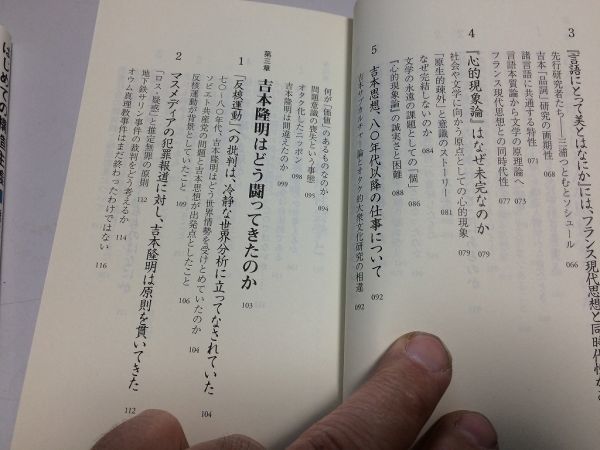 3 『言語にとって美とはなにか』には、フランス現代思想と同時代性な
先行研究者たち――三浦つとむとソシュール 066
吉本「品詞」研究の画期性 068
諸言語に共通する特性 071
言語本質論から文学の原理論へ 073
フランス現代思想との同時代性 077
4 『心的現象論』はなぜ未完なのか 079
社会や文学に向かう原点としての心的現象 079
「原生的疎外」と意識のストーリー 081
なぜ完結しないのか 084
文学の永遠の課題としての「個」 086
『心的現象論』の誠実さと困難 088
5 吉本思想、八〇年代以降の仕事について 092
吉本サブカルチャー論とオタク的大衆文化研究の相違 092
何が「価値」のあるものなのか 094
問題意識の喪失という事態 096
オタク化したニッポン 098
吉本隆明は間違えたのか 099
第三章 吉本隆明はどう闘ってきたのか 103
1 「反核運動」への批判は、冷静な世界分析に立ってなされていた 104
七〇-八〇年代、吉本隆明はどう世界情勢を受けとめていたのか 104
ソビエト共産党の問題と吉本思想が出発点としたこと 106
反核運動が背景としていたこと 109
2 マスメディアの犯罪報道に対し、吉本隆明は原則を貫いてきた 112
「ロス・疑惑」と推定無罪の原則 112
地下鉄サリン事件の裁判をどう考えるか 114
オウム真理教事件はまだ終わったわけではない 116
はじめての